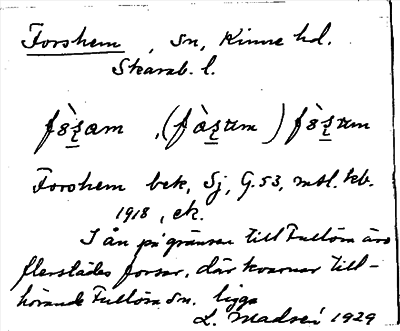 Forshem, Sn, Kinne hd.
Skarab. l.
fə̀ʂæm, (fàʂtem) fə̀ʂtem
Forshem bek, Sj, G.53, mtl. kb.
1918, ek.
I ån på gränsen till Fullösa äro
flerstädes forsar, där kvarnar till-
hörande Fullösa sn. ligga
L. Madsén 1929